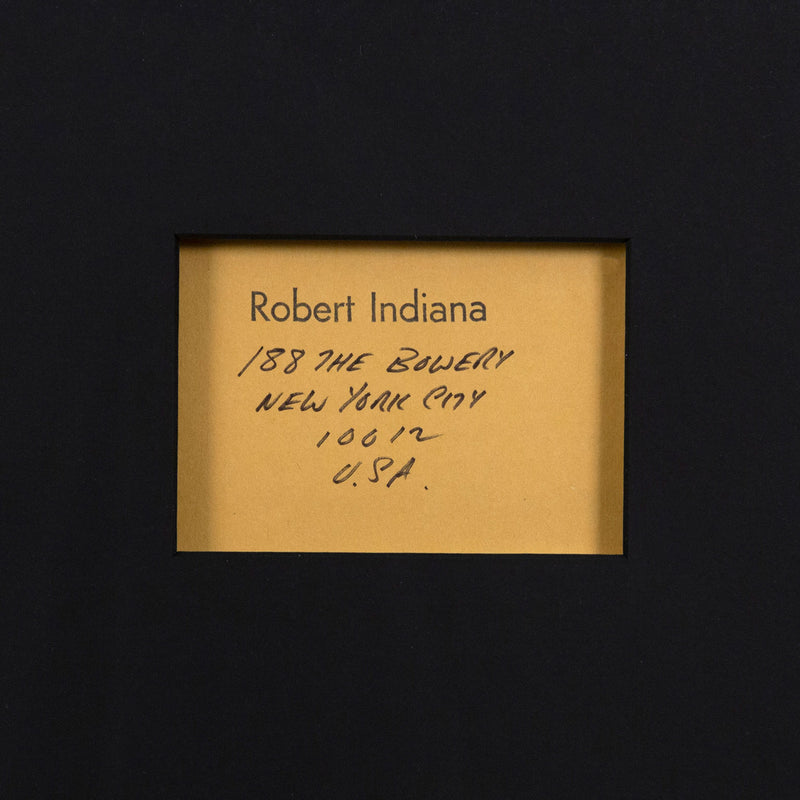 Robert Indiana
188 THE BOWERY
NEW YORK CITY
10012
U.SA.